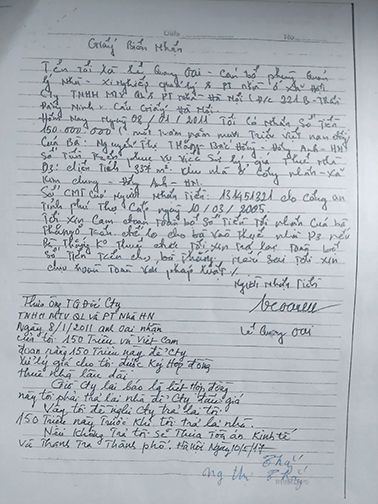 Date No
Giấy Biên Nhận
Tên Tôi là Lê Quang Oai - Cán bộ phòng Quản
lý Nhà - Xí nghiệp quản lý & PT Nhà ở Xã Hội
Cty TNHH MTV QL & PT Nhà Hà Nội (Đ/c 221B - Trần
Đăng Ninh - Cầu Giấy Hà Nội
Hôm nay Ngày 08/01/2011 Tôi có nhận Số Tiền
150.000.000 (một trăm năm mươi Triệu Việt nam đồng
Của Bà: Nguyễn Thị Thắng Bắc Hồng - Đông Anh - HN
Số Tiền phục vụ việc xử lý giá thuê Nhà
D3 diện Tích 337 m². Khu nhà ở Công nhân - Xã
Kim chung - Đông Anh - HN.
Số CMT của Người nhận Tiền: 131451321 do công an
Tỉnh Phú Thọ Cấp ngày 10/03/2005.
Tôi Xin Cam đoan Toàn bộ Số Tiền Tôi nhận Của bà
Thắng để lo cho bà vào Thuê nhà D3 nếu
Bà Thắng ko thuê được Tôi xin trả lại Toàn bộ
Số Tiền cho bà Thắng, nếu sai Tôi xin
chịu hoàn Toàn trước pháp luật/
Người Nhận Tiền
Lê Quang Oai
Thưa Ông TG Đốc Cty
TNHH MTV QL và PT Nhà HN
Ngày 8/1/2011 anh Oai nhận
của tôi 150 Triệu và Viết Cam
đoan rằng 150 Triệu này để Cty
Xử lý giá cho tôi được Ký Hợp đồng
thuê Nhà lâu dài
Giờ Cty lại bảo là hết Hợp đồng
này tôi phải trả lại nhà để Cty đấu giá
Vậy tôi đề nghị Cty trả lại tôi
150 triệu này trước Khi tôi trả lại nhà.
Nếu Không Trả tôi Sẽ Thưa Tòa án Kinh tế
và Thanh Tra Thành phố. Hà Nội Ngày 10/5/17